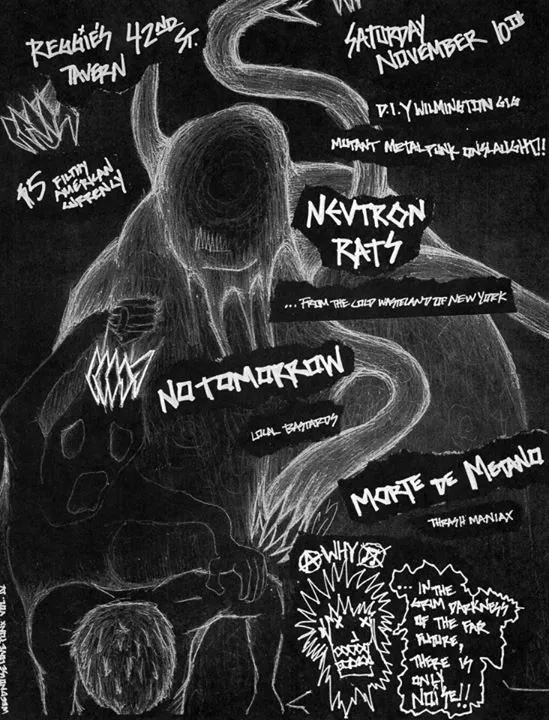 REGGIE'S 42ND ST.
TAVERN
SATURDAY
NOVEMBER 10TH
D.I.Y WILMINGTON GIG
MUTANT METALPUNK ONSLAUGHT!!
$5 FILTHY
AMERICAN
CURRENCY
NEUTRON
RATS
... FROM THE COLD WASTELAND OF NEW YORK
NO TOMORROW
LOCAL BASTARDS
MORTE DE METANO
THRASH MANIAX
WHY
... IN THE
GRIM DARKNESS
OF THE FAR
FUTURE,
THERE IS
ONLY
NOISE!!